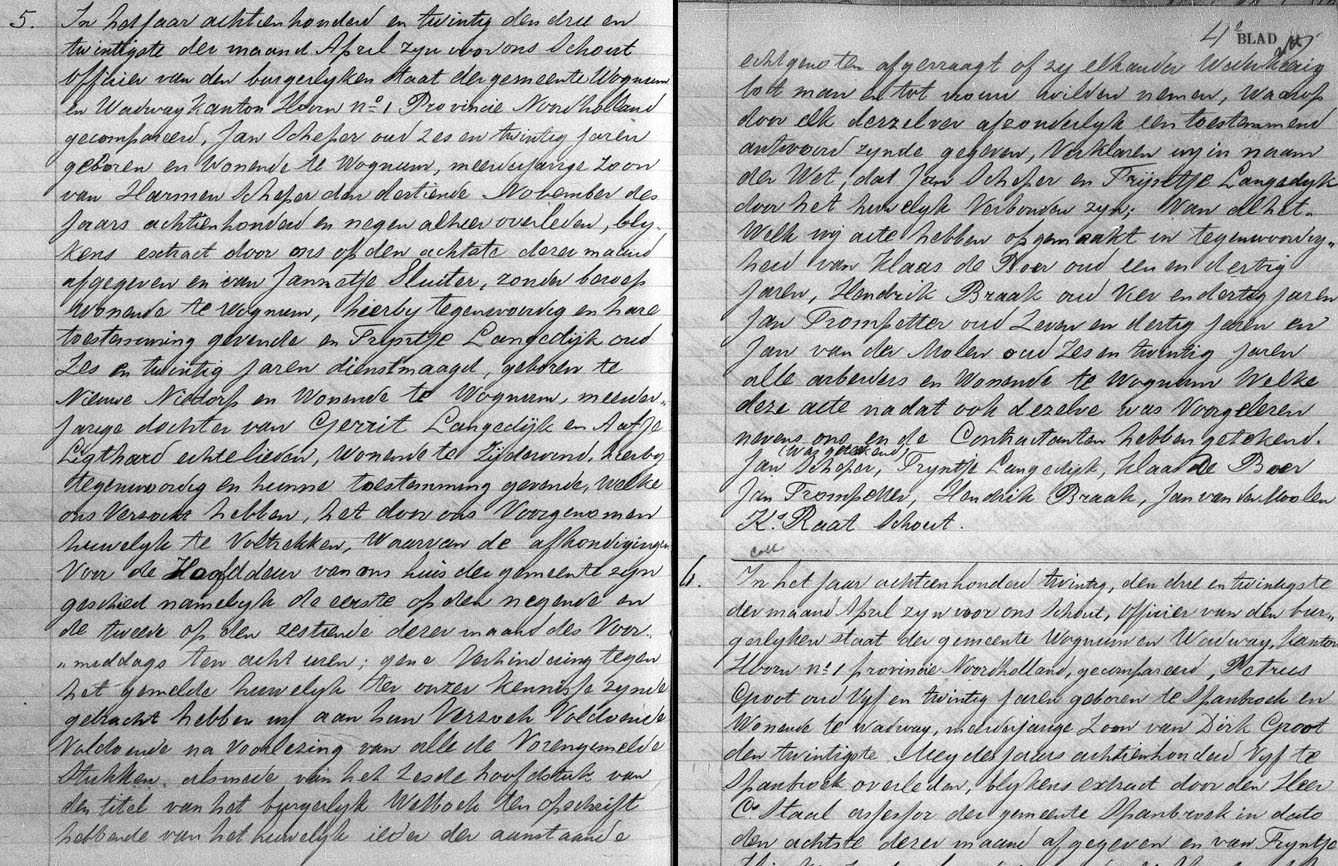 5. In het jaar achtienhonderd en twintig den drie en
twintigste der maand April zyn voor ons Schout
officier van den burgerlyken staat der gemeente Wognum
en Wadway kanton Hoorn no 1 Provincie Noordholland
gecompareerd, Jan Scheper oud zes en twintig jaren
geboren en wonende te Wognum, meerderjarige zoon
van Harmen Scheper den dertiende November des
jaars achtienhonderd en negen alhier overleden, bly-
kens extract door ons op den achtste dezer maand
afgegeven en van Jannetje Sluiter, zonder beroep
wonende te Wognum, hierby tegenwoordig en hare
toestemming gevende en Tryntje Langedijk oud
zes en twintig jaren dienstmaagd, geboren te
Nieuwe Niedorp en Wonende te Wognum, meerder-
jarige dochter van Gerrit Langedijk en Aafje
echtelieden, Wonende te Zijdewind, hierby
tegenwoordig en hunne toestemming gevende, welke
ons Verzocht hebben, het door ons Voorgenomen
huwelyk te Voltrekken, Waarvan de afkondigingen
Voor de Hoofddeur van ons huis der gemeente zyn
geschied namelyk de eerste op den negende en
de tweede op den zestiende dezer maand des Voor-
„middags ten acht uren; gene Verhindering tegen
het gemelde huwelyk ter onzer kennisse zynde
gebracht hebben wy aan hun Verzoek Voldoende
Voldoende na Voorlezing van alle de Vorengemelde
stukken alsmede van het zesde hoofdstuk van
den titel van het burgerlyk Wetboek ten opschrift
hebbende van het huwelyk ieder der aanstaande
4e BLAD
echtgenoten afgevraagt of zy elkander Wederkeerig
tot man en tot vrouw wilden nemen, waarop
door elk derzelver afzonderlyk een toestemmend
antwoord zynde gegeven, Verklaren wy in naam
der Wet, dat Jan Scheper en Tryntje Langedyk
door het huwelyk Verbonden zyn; Van al het-
Welk wy acte hebben opgemaakt in tegenwoordig-
heid van Klaas de Boer oud een en dertig
jaren, Hendrik Braak oud Vier en dertig jaren
Jan Trompetter oud Zeven en dertig jaren en
Jan van der Molen oud Zes en twintig jaren
alle arbeiders en Wonende te Wognum Welke
deze acte nadat ook dezelve was Voorgelezen
nevens ons en de Contractanten hebben getekend.
(was getekend)
Jan Scheper, Tryntje Langedijk, Klaas De Boer
Jan Trompetter, Hendrik Braak, Jan van der Moolen
K. Raat Schout.
coll
6. In het jaar achtienhonderd twintig, den drie en twintigste
der maand April zyn voor ons Schout, Officier van den bur-
gerlyken staat der gemeente Wognum en Wadway, kanton
Hoorn no 1 provincie Noordholland, gecompareerd, Petrus
Groot oud Vyf en twintig jaren geboren te Spanbroek en
Wonende te Wadway, meerderjarige Zoon van Dirk Groot
den twintigste Mey des jaars achtienhonderd Vyf te
Spanbroek overleden, blykens extract door den Heer
C. Staal assessor der gemeente Spanbroek in dato
den achtste dezer maand afgegeven en van Tryntje